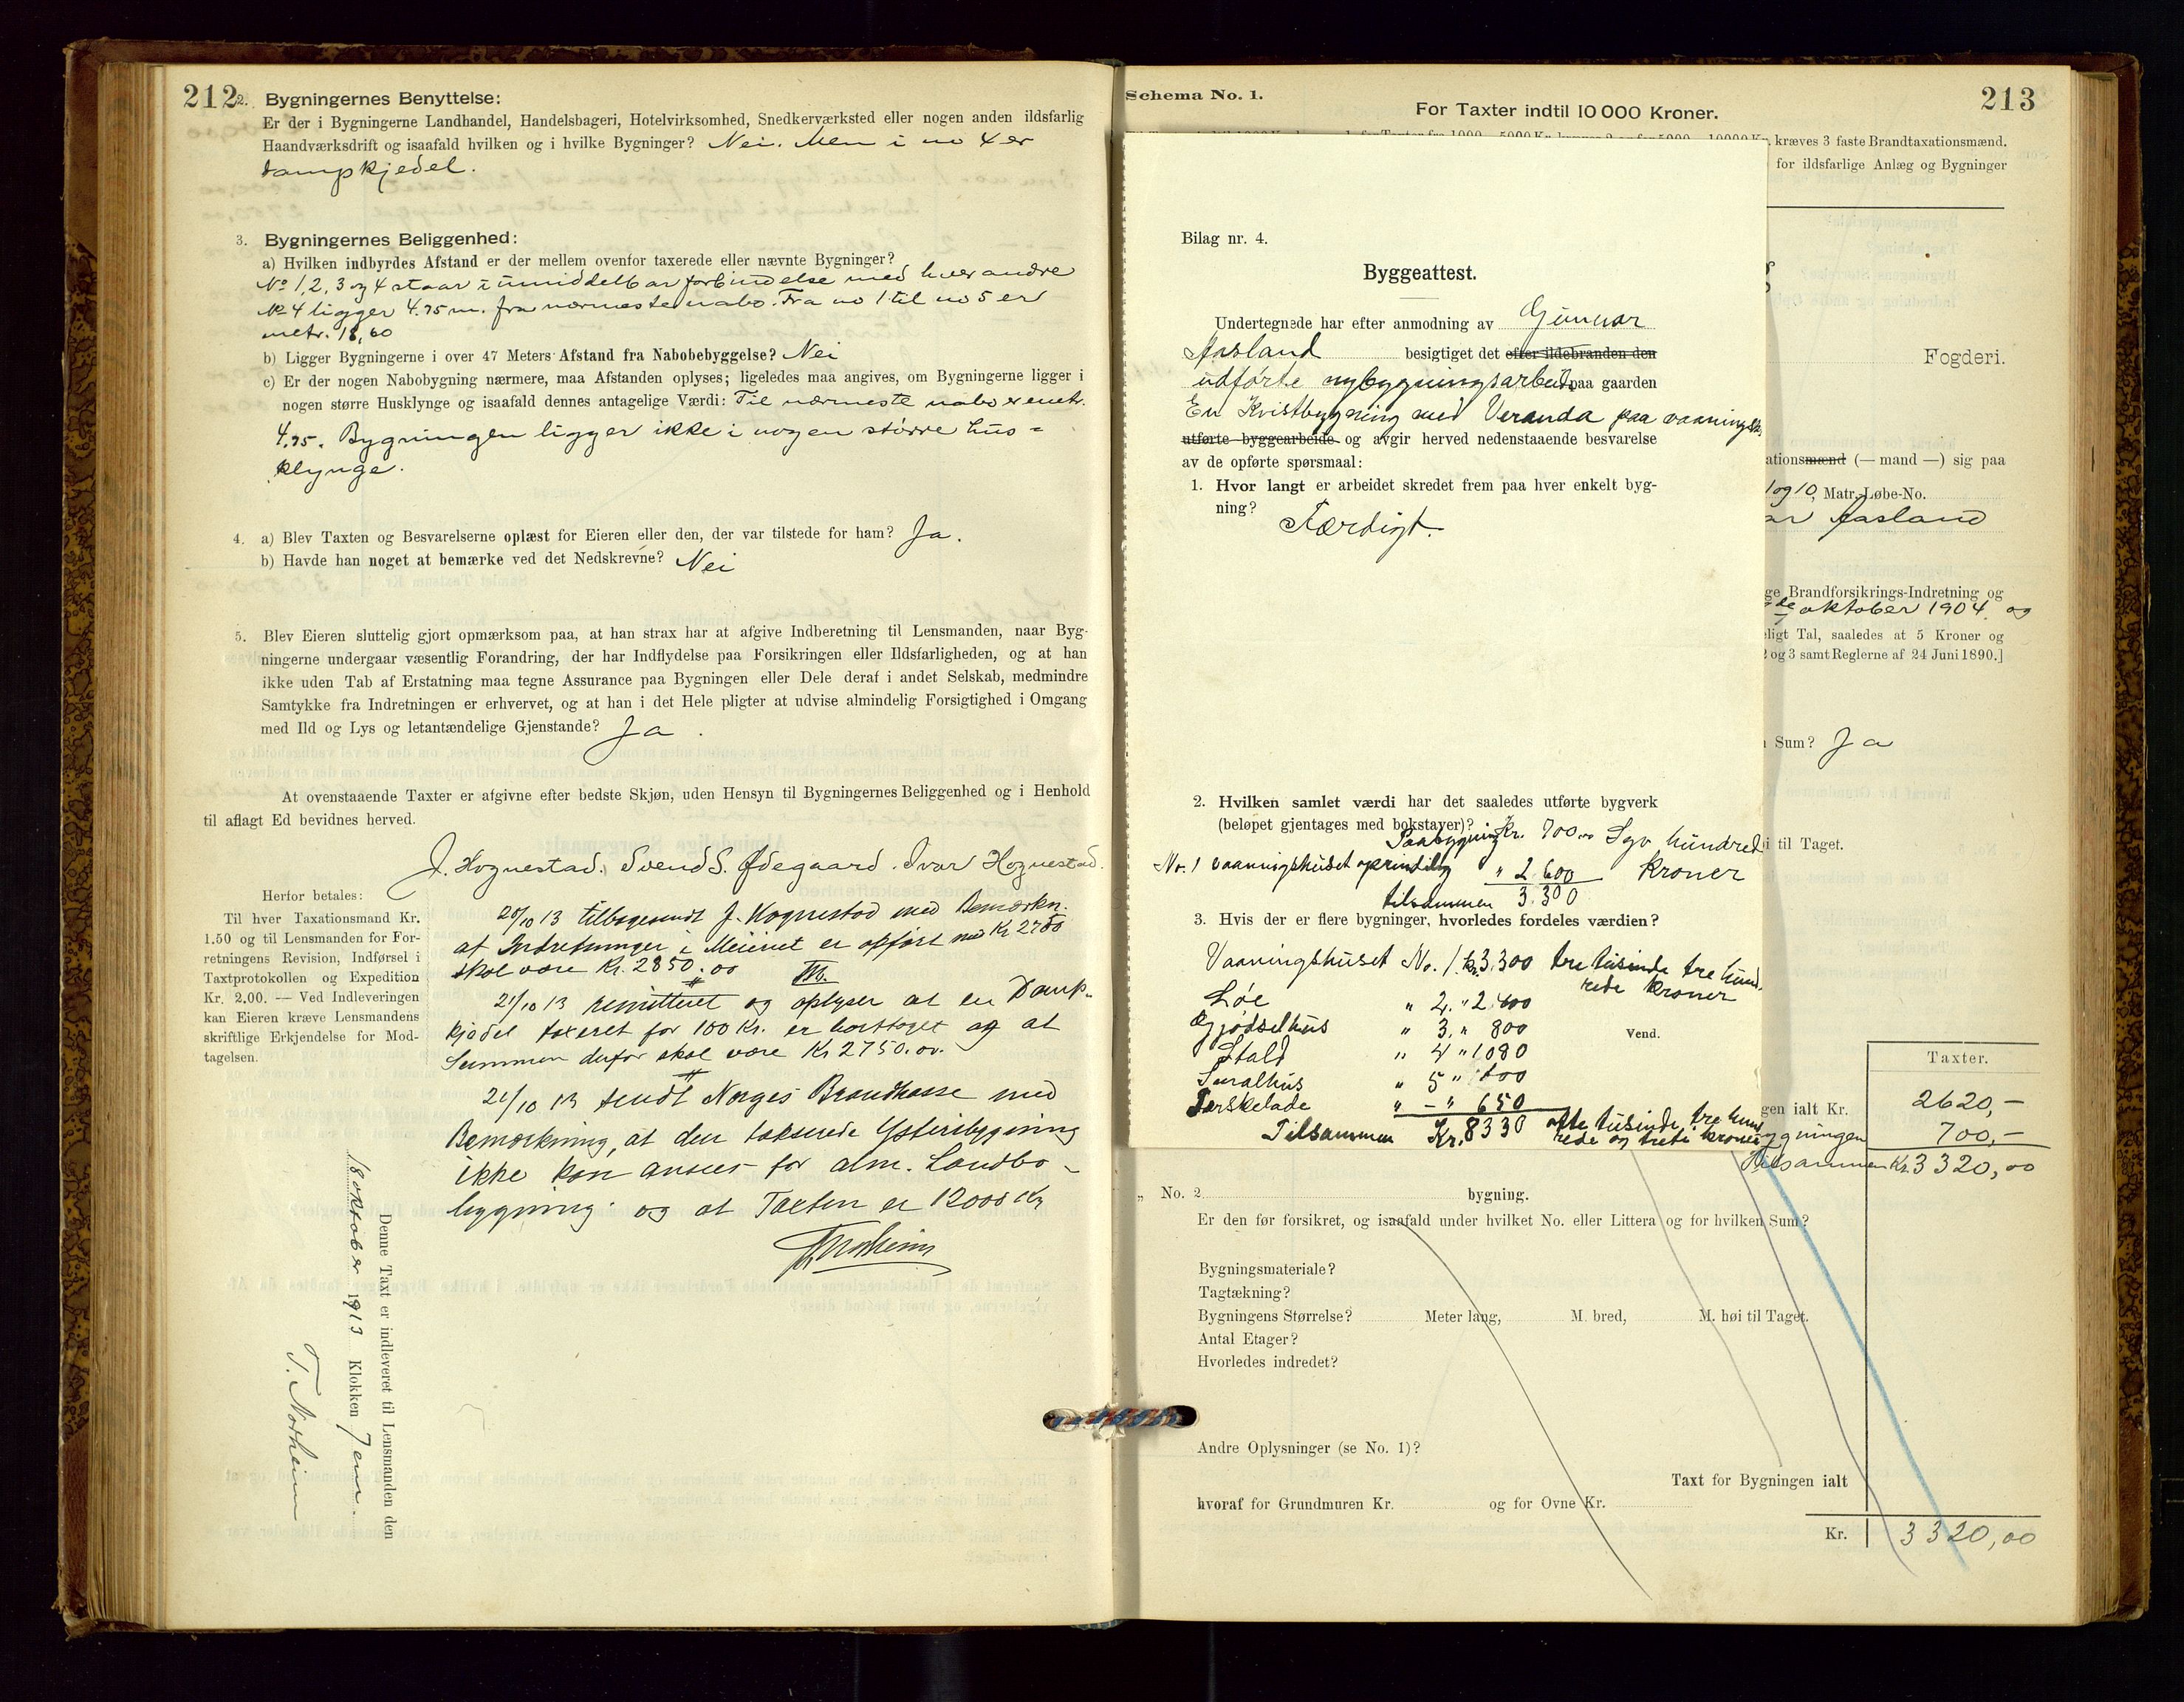 212
2. Bygningernes Benyttelse:
Er der i Bygningerne Landhandel, Handelsbageri, Hotelvirksomhed, Snedkerværksted eller nogen anden ildsfarlig
Haandværksdrift og isaafald hvilken og i hvilke Bygninger? Nei. Men i no 4 er
dampkjedel.
3. Bygningernes Beliggenhed:
a) Hvilken indbyrdes Afstand er der mellem ovenfor taxerede eller nævnte Bygninger?
No 1, 2, 3 og 4 staar i umiddelbar forbindelse med hverandre
No 4 ligger 4.75 m. fra nærmeste nabo. Fra no 1 til no 5 er
metr. 18,60
b) Ligger Bygningerne i over 47 Meters Afstand fra Nabobebyggelse? Nei
c) Er der nogen Nabobygning nærmere, maa Afstanden oplyses; ligeledes maa angives, om Bygningerne ligger i
nogen større Husklynge og isaafald dennes antagelige Værdi: Til nærmeste nabo er metr.
4.75. Bygningen ligger ikke i nogen større hus=
klynge.
4. a) Blev Taxten og Besvarelserne oplæst for Eieren eller den, der var tilstede for ham? Ja.
b) Havde han noget at bemærke ved det Nedskrevne? Nei
5. Blev Eieren sluttelig gjort opmærksom paa, at han strax har at afgive Indberetning til Lensmanden, naar Byg-
ningerne undergaar væsentlig Forandring, der har Indflydelse paa Forsikringen eller Ildsfarligheden, og at han
ikke uden Tab af Erstatning maa tegne Assurance paa Bygningen eller Dele deraf i andet Selskab, medmindre
Samtykke fra Indretningen er erhvervet, og at han i det Hele pligter at udvise almindelig Forsigtighed i Omgang
med Ild og Lys og letantændelige Gjenstande? Ja.
At ovenstaaende Taxter er afgivne efter bedste Skjøn, uden Hensyn til Bygningernes Beliggenhed og i Henhold
til aflagt Ed bevidnes herved.
J. Hognestad. Svend S. Ødegaard. Ivar Hognestad.
Herfor betales:
Til hver Taxationsmand Kr.
1.50 og til Lensmanden for For-
retningens Revision, Indførsel i
Taxtprotokollen og Expedition
Kr. 2.00. — Ved Indleveringen
kan Eieren kræve Lensmandens
skriftlige Erkjendelse for Mod-
tagelsen.
20/10 13 tilbagesendt J. Hognestad med Bemærkn.
at Indretninger i Meieriet er opført med Kr 2750
skal være Kr. 2850.00
21/10 13 remitteret og oplyser at en Damp-
kjedel taxeret for 100 Kr. er borttaget og at
Summen derfor skal være Kr 2750.00.
21/10 13 sendt Norges Brandkasse med
Bemærkning, at den takserede Ysteribygning
ikke kan ansees for alm. Landbo-
bygning og at Taxten er 12000 Kr
TNorheim
Denne Taxt er indleveret til Lensmanden den
18 oktober 1913 Klokken 7 em.
T. Norheim
Schema No. 1.
213
For Taxter indtil 10 000 Kroner.
kræves 3 faste Brandtaxationsmænd.
for ildsfarlige Anlæg og Bygninger
Fogderi.
ationsmænd (— mand —) sig paa
1 og 10, Matr.-Løbe-No.
ar Aasland
ge Brandforsikrings-Indretning og
de oktober 1904 og
eligt Tal, saaledes at 5 Kroner og
2 og 3 samt Reglerne af 24 Juni 1890.]
Sum? Ja
i til Taget.
Bilag nr. 4.
Byggeattest.
Undertegnede har efter anmodning av Gunnar
Aasland besigtiget det efter ildebranden den
udførte nybygningsarbeide paa gaarden
En Kvistbygning med Veranda paa vaaningsh.
utførte byggearbeide og avgir herved nedenstaaende besvarelse
av de opførte spørsmaal:
1. Hvor langt er arbeidet skredet frem paa hver enkelt byg-
ning?
Færdigt.
2. Hvilken samlet værdi har det saaledes utførte bygverk
(beløpet gjentages med bokstaver)?
Paabygning Kr. 700.00 Syv hundred
No. 1 vaaningshuset oprindelig " 2.600 Kroner
tilsammen 3.300
3. Hvis der er flere bygninger, hvorledes fordeles værdien?
Vaaningshuset No. 1. kr. 3.300 tre tusinde tre hund-
rede kroner
Løe " 2. " 2.400
Gjødselhus " 3. " 800
Stald " 4 " 1080
" 5 " 100
Tærskelade " - " 650
Tilsammen Kr. 8330 otte tusinde, tre hund
rede og treti kroner
Vend.
Taxter.
gen ialt Kr. 2620,-
ygningen 700,-
Tilsammen Kr. 3320,00
" No. 2 bygning.
Er den før forsikret, og isaafald under hvilket No. eller Littera og for hvilken Sum?
Bygningsmateriale?
Tagtækning?
Bygningens Størrelse? Meter lang, M. bred, M. høi til Taget.
Antal Etager?
Hvorledes indredet?
Andre Oplysninger (se No. 1)?
Taxt for Bygningen ialt
hvoraf for Grundmuren Kr. og for Ovne Kr.
Kr. 3320,00